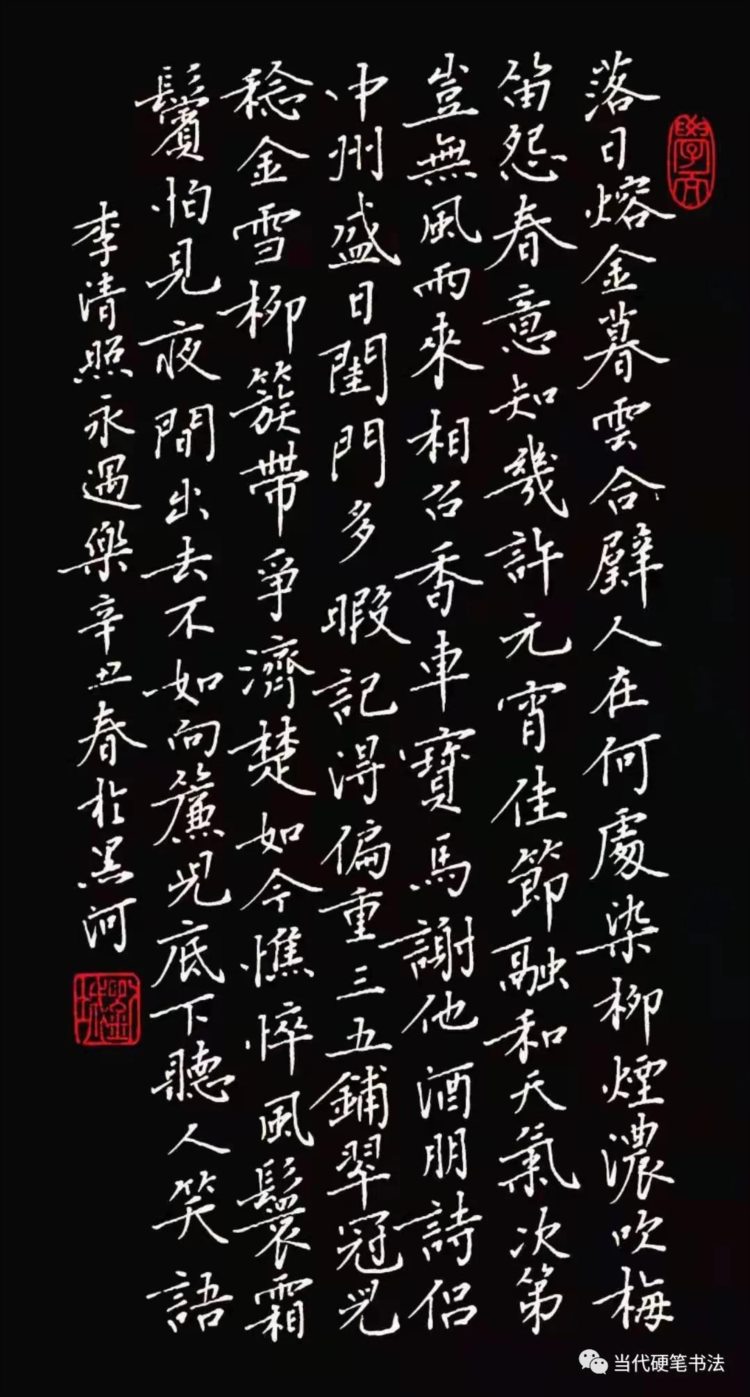 落日熔金暮雲合璧人在何處染柳煙濃吹梅
笛怨春意知幾許元宵佳節融和天氣次第
豈無風雨來相召香車寶馬謝他酒朋詩侶
中州盛日閨門多暇記得偏重三五鋪翠冠兒
稔金雪柳簇帶爭濟楚如今憔悴風鬟霜
鬢怕見夜間出去不如向簾兒底下聽人笑語
李清照永遇樂辛丑春於黑河
当代硬笔书法